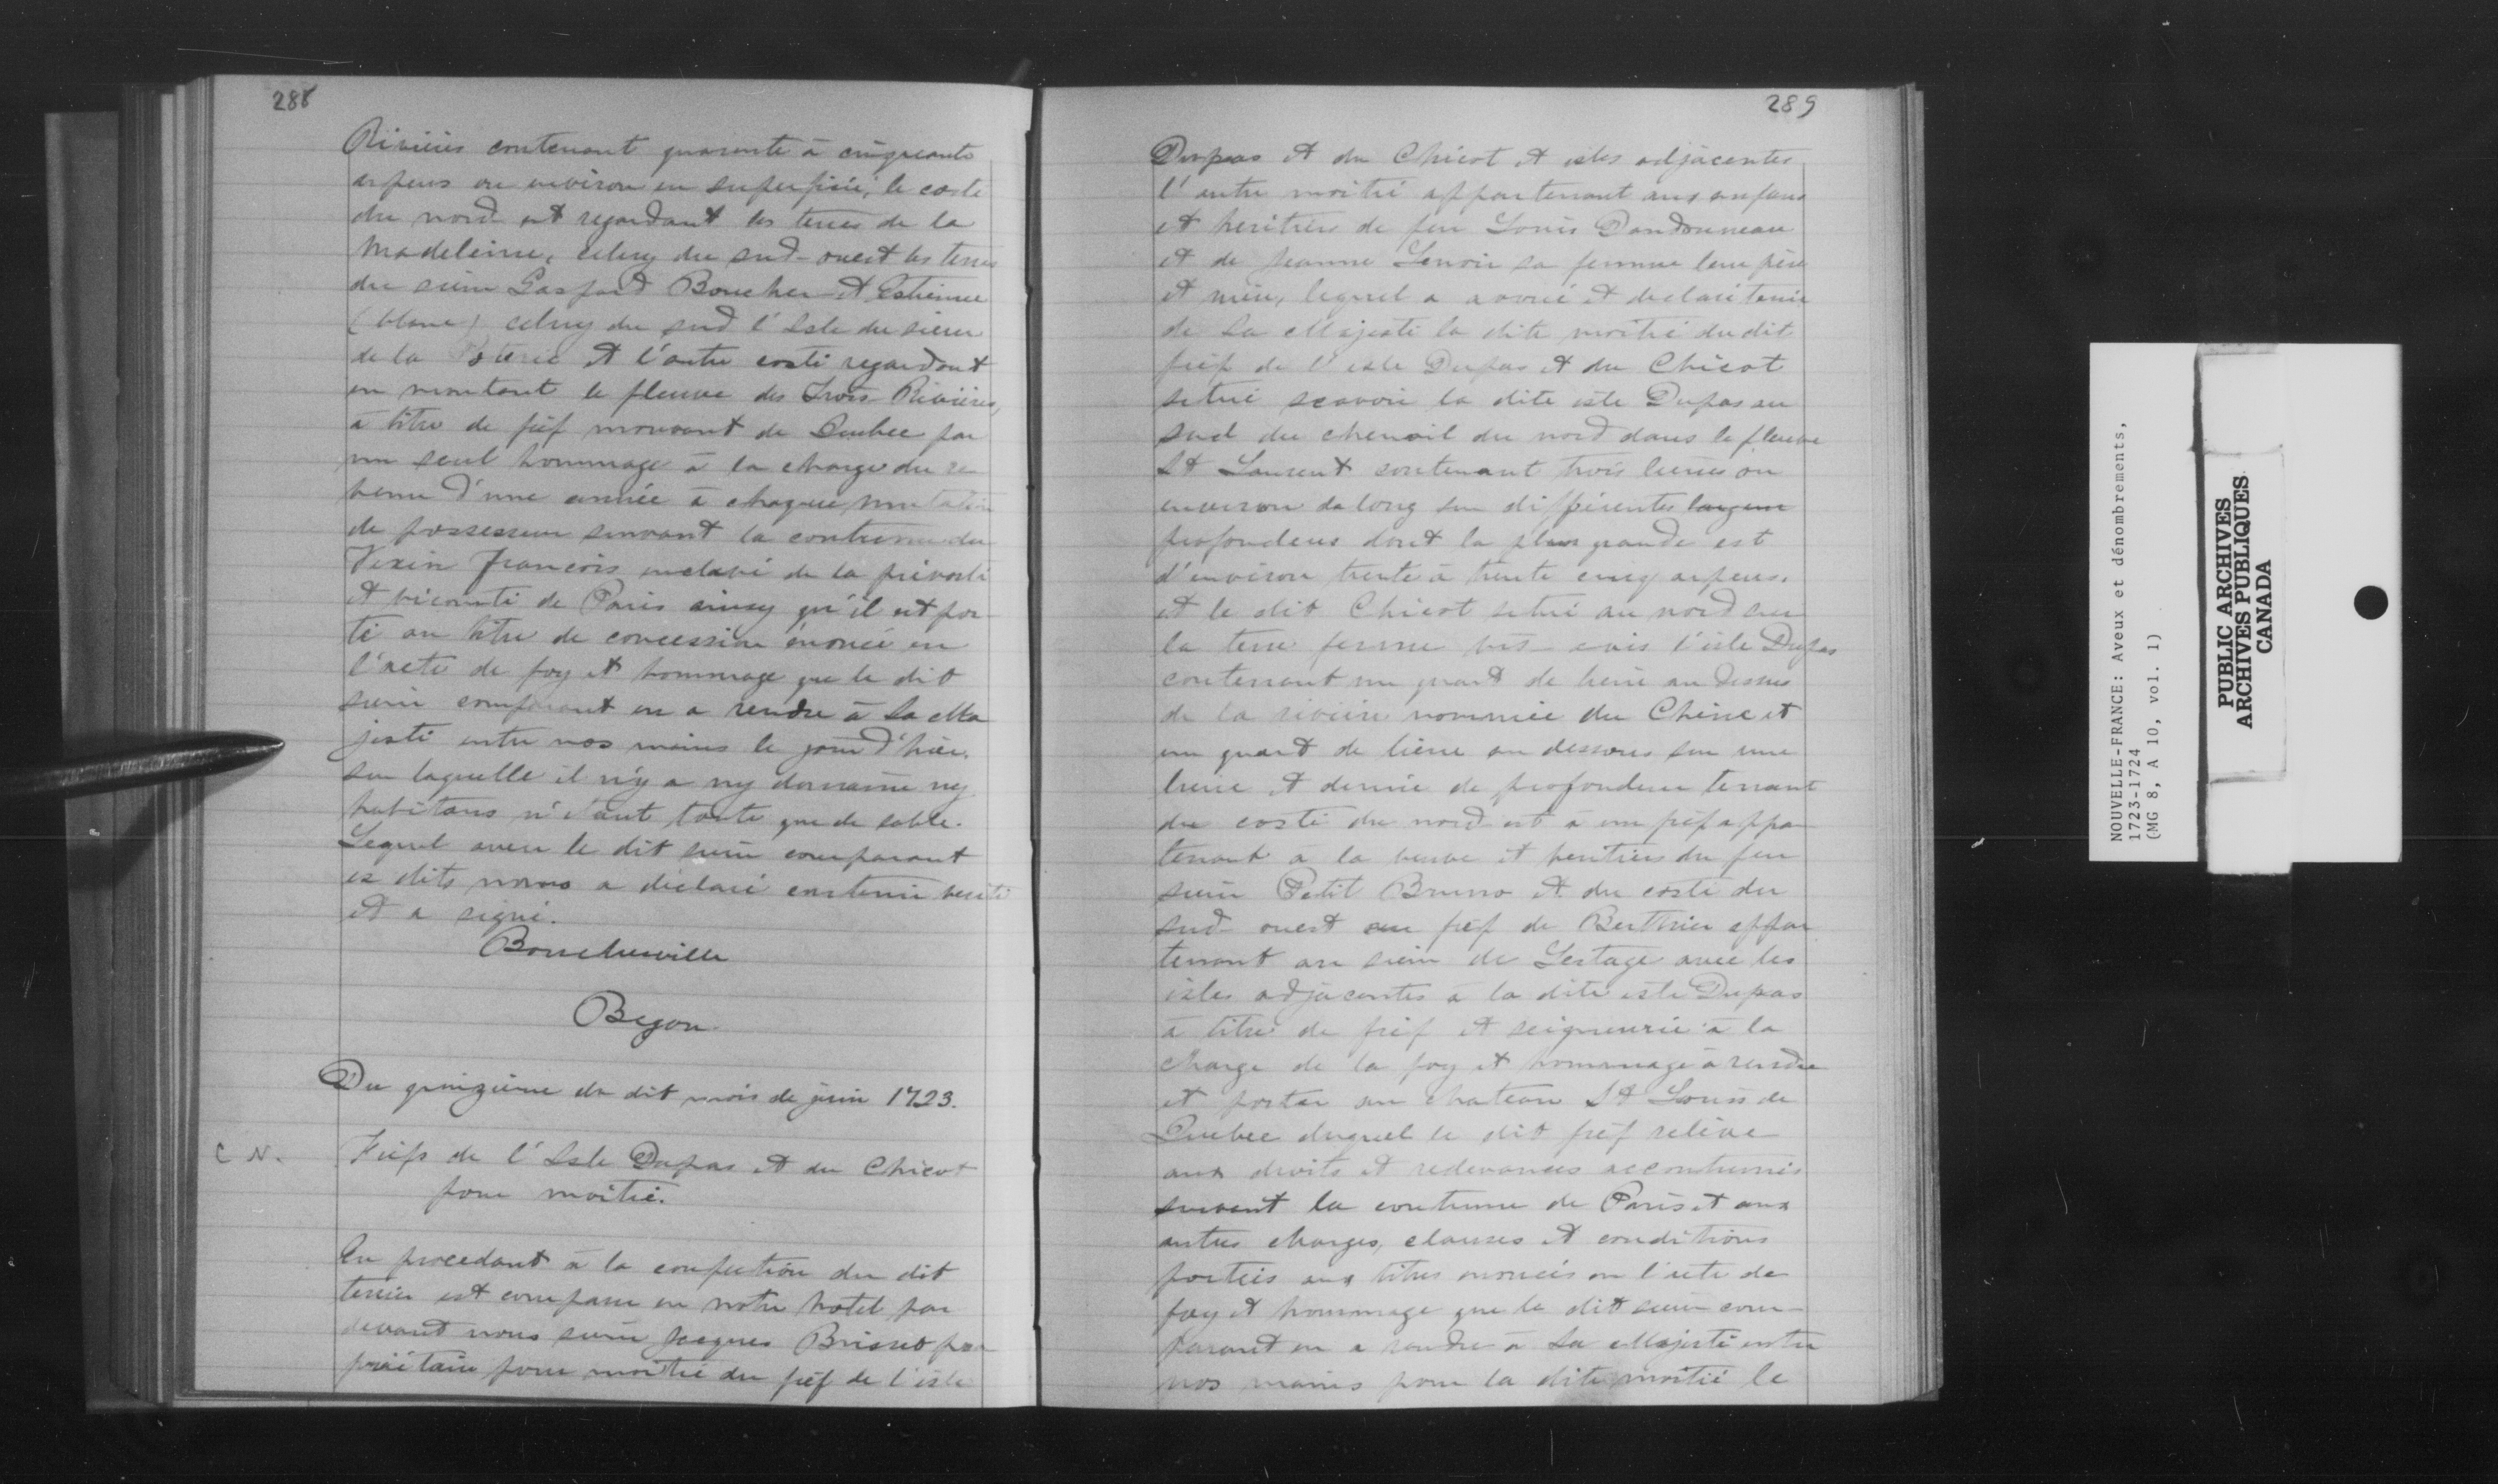 288
Rivières contenant quarante à cinquante
arpens ou environ en superficie, le costé
du nord est regardant les terres de la
Madeleine, celuy du sud-ouest les terres
du sieur Gaspard Boucher et Estienne
(blanc) celuy du sud l'Isle du sieur
de la Poterie et l'autre costé regardant
en montant le fleuve des Trois-Rivières,
à titre de fief mouvant de Quebec par
un seul hommage à la charge du re
venu d'une année à chaque mutation
de possesseur suivant la coutume du
Vexin françois enclavé de la prévosté
et vicomté de Paris ainsy qu'il est por-
té au titre de concession énoncé en
l'acte de foy et hommage que le dit
sieur comparant en a rendu à Sa Ma
jesté entre nos mains le jour d'hier.
sur laquelle il n'y a ny domaine ny
habitans n'étant toute que de sable.
Lequel aveu le dit sieur comparant
es dits noms a déclaré contenir verité
et a signé.
Boucherville
Begon
Du quinzième du dit mois de juin 1723.
C N.
Fiefs de l'Isle Dupas et du Chicot
pour moitié.
En procedant à la confection du dit
terrier est comparu en notre hotel par
devant nous sieur Jacques Brisset pro
priétaire pour moitié du fief de l'isle
289
Dupas et du Chicot et isles adjacentes
l'autre moitié appartenant aux enfans
et heritiers de feu Louis Dandonneau
et de Jeanne Lenoir sa femme leur père
et mère, lequel a avoué et declaré tenir
de Sa Majesté la dite moitié du dit
fief de l'isle Dupas et du Chicot
situé scavoir la dite isle Dupas au
sud du chenail du nord dans le fleuve
St Laurent contenant trois lieues ou
environ de long sur differentes largeur
profondeurs dont la plus grande est
d'environ trente à trente cinq arpens.
et le dit Chicot situé au nord sur
la terre ferme vis-avis l'isle Dupas
contenant un quart de lieue au dessus
de la rivière nommée du Chene et
un quart de lieue au dessous sur une
lieue et demie de profondeur tenant
du costé du nord est à un fief appar
tenant à la veuve et heritiers du feu
sieur Petit Bruno et du costé du
sud ouest au fief de Berthier appar
tenant au sieur de Lestage avec les
isles adjacentes à la dite isle Dupas
à titre de fief et seigneurie à la
charge de la foy et hommage à rendre
et porter au chateau St Louis de
Quebec duquel le dit fief relève
aux droits et redevances accoutumés
suivant la coutume de Paris et aux
autres charges, clauses et conditions
portées aux titres énoncés en l'acte de
foy et hommage que le dit sieur com-
parant en a rendu à Sa Majesté entre
nos mains pour la dite moitié le
NOUVELLE-FRANCE: Aveux et dénombrements,
1723-1724
(MG 8, A 10, vol. 1)
PUBLIC ARCHIVES
ARCHIVES PUBLIQUES
CANADA